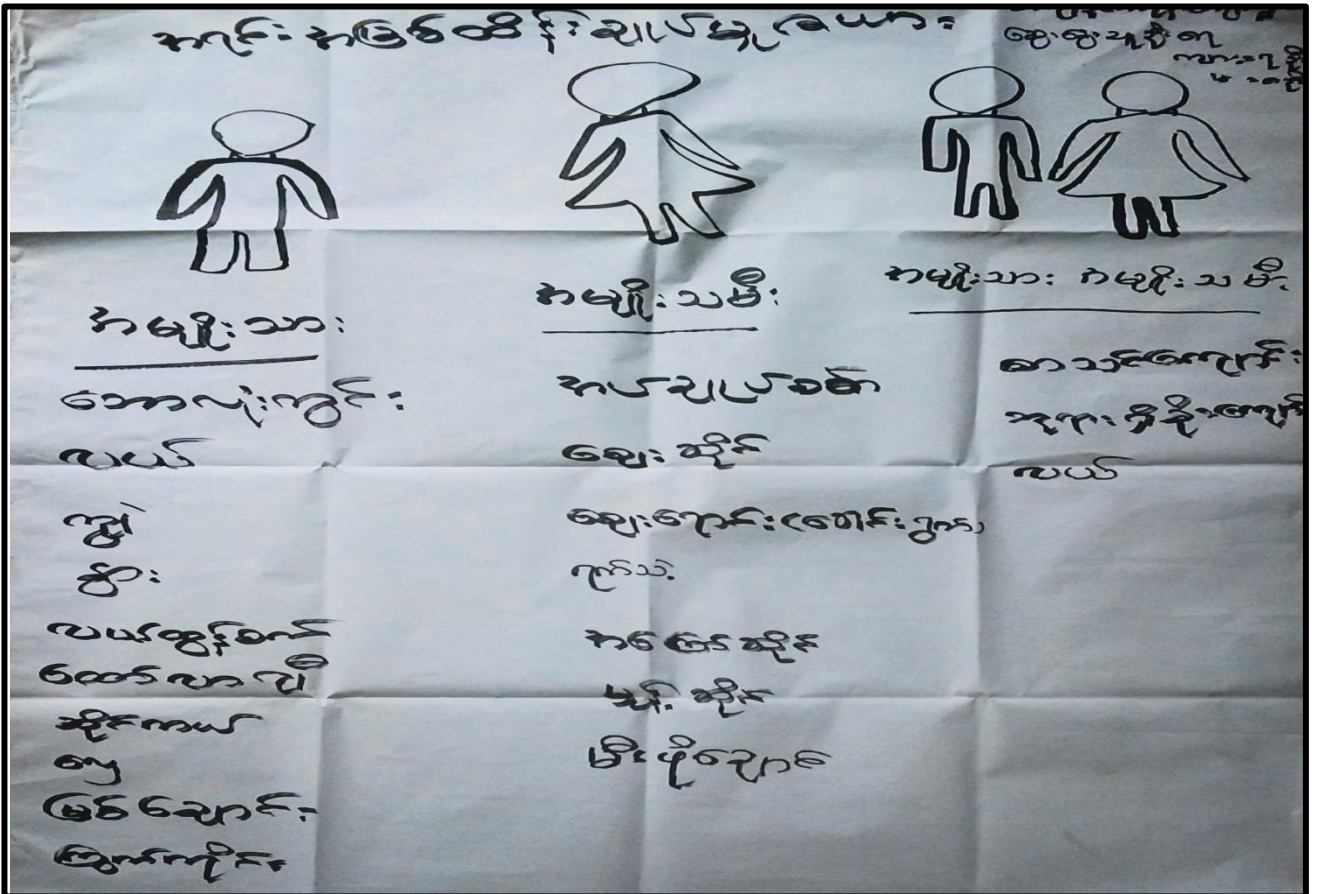 အရင်းအမြစ်ထိန်းချုပ်မှုဇယား
ဆွေးနွေးသူဦးရေ
အမျိုးသား
ဘောလုံးကွင်း
လယ်
ကျွဲ
နွား
လယ်ထွန်စက်
ထော်လာဂျီ
ဆိုင်ကယ်
လှေ
မြစ်ချောင်း
ကြွက်ကိုင်း
အမျိုးသမီး
အပ်ချုပ်စက်
ဈေးဆိုင်
ဈေးရောင်း(ခေါင်းရွက်)
ရက်သဲ့
အကြော်ဆိုင်
မုန့်ဆိုင်
မီးဖိုချောင်
အမျိုးသား အမျိုးသမီး
စာသင်ကျောင်း
ဘုရားရှိခိုးကျောင်း
လယ်